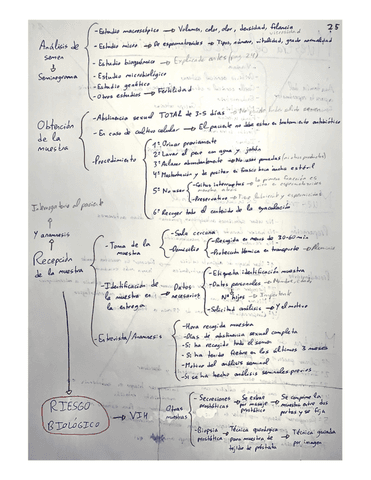 25
Análisis de semen ó Seminograma
- Estudio macroscópico → Volumen, color, olor, densidad, filancia
- Estudio micro. → De espermatozoides → Tipos, número, vitalidad, grado normalidad
- Estudio bioquímico → Explicado antes (pag. 24)
- Estudio microbiológico
- Estudio genético
- Otros estudios → Fertilidad
Obtención de la muestra
- Abstinencia sexual TOTAL de 3-5 días
- En caso de cultivo celular → El paciente no debe estar en tratamiento antibiótico
- Procedimiento
1º Orinar previamente
2º Lavar el pene con agua y jabón
3º Aclarar abundantemente → No usar pomadas
4º Masturbación y de positar en frasco boca ancha estéril
5º No usar
- Coitus interruptus
- Preservativo
6º Recoger todo el contenido de la eyaculación
Interrogatorio al paciente
Y anamnesis
Recepción de la muestra
- Toma de la muestra
- Sala cercana
- Domicilio
- Recogida en menos de 30-60 min
- Protección térmica en transporte
- Identificación de la muestra en la entrega
Datos necesarios
- Etiqueta identificación muestra
- Datos personales
Nº hijos → Importante
- Solicitud análisis → Y el motivo
- Entrevista/Anamnesis
- Hora recogida muestra
- Días de abstinencia sexual completa
- Si ha recogido todo el semen
- Si ha tenido fiebre en los últimos 3 meses
- Motivo del análisis seminal
- Si se ha hecho análisis seminales previos
RIESGO BIOLÓGICO
→ VIH
Otras muestras
- Secreciones prostáticas → Se extrae por masaje prostático → Se comprime la muestra entre dos portas y se fija
- Biopsia prostática → Técnica quirúrgica para muestra de tejido de próstata → Técnica guiada por imagen